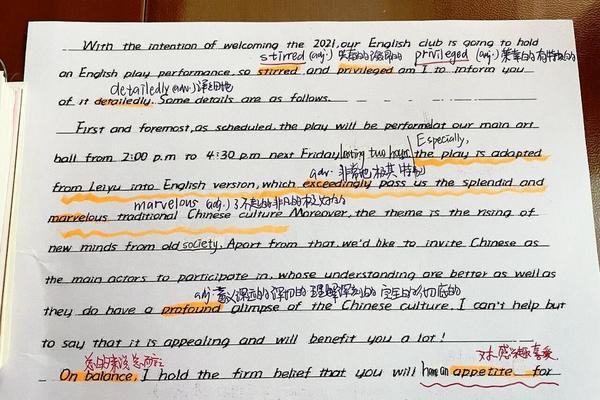 With the intention of welcoming the 2021, our English club is going to hold
stirred (adj.) privileged (adj.)
an English play performance, so stirred and privileged am I to inform you
detailedly (adv.) 详细地
of it detailedly. Some details are as follows.
First and foremost, as scheduled, the play will be performed at our main art
Especially,
hall from 2:00 p.m to 4:30 p.m next Friday, lasting two hours the play is adapted
adv. 非常地 极其 特别
from Leiyu into English version, which exceedingly pass us the splendid and
marvelous (adj.) 了不起的 非凡的
marvelous traditional Chinese culture Moreover, the theme is the rising of
new minds from old society. Apart from that we'd like to invite Chinese as
the main actors to participate in, whose understanding are better as well as
adj. 意义深远的 深切的 理解深刻的
they do have a profound glimpse of the Chinese culture. I can't help but
to say that it is appealing and will benefit you a lot!
总的来说 对 感兴趣 喜爱
On balance, I hold the firm belief that you will have an appetite for